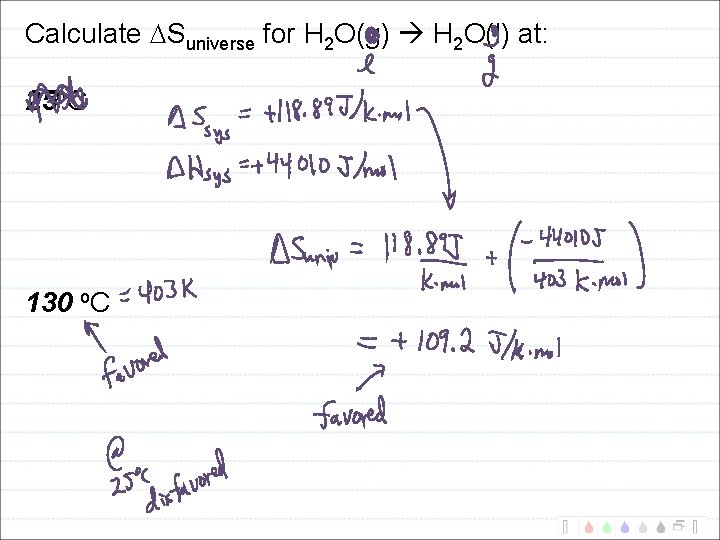 Calculate ∆Suniverse for H2O(g) → H2O(l) at:
l g
ΔSsys = +118.89 J/K·mol
ΔHsys = +44010 J/mol
ΔSuniv = 118.89J/K·mol + (-44010J/403 K·mol)
130 ºC = 403 K
= +109.2 J/K·mol
favored
favored
@ 25°C
disfavored